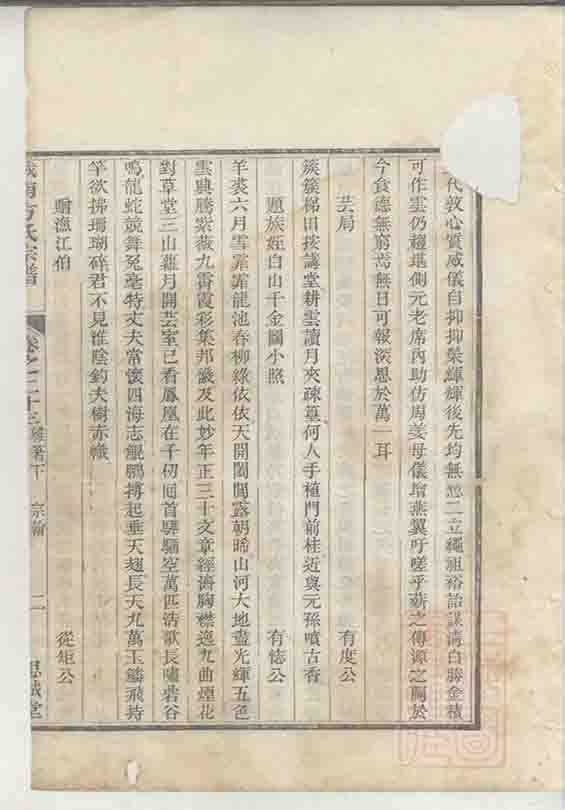 代敦心質威儀自抑抑槩輝輝後先均無愆二立繩祖裕詒謀淸白勝金積
可作雲仍趨進側元老席內助仿周姜母儀增燕翼吁嗟乎薪之傳源之關於
今食德無窮焉無日可報深恩於萬一耳
芸局 有度公
簇簇梯田按講堂耕雲讀月夾疎篁何人手植門前桂近與元孫噴古香
題族姪白山千金圖小照 有誌公
羊裘六月雪霏霏龍池春柳綠依依天開閶閭露朝晞山河大地盡光輝五色
雲與騰紫薇九霄霞彩集邦畿及此妙年正三十文章經濟胸襟逸九曲煙花
對草堂三山蘿月開芸室已看鳳凰在千仞回首驊騮空萬匹浩歌長嘯若谷
鳴龍蛇競舞兔毫特丈夫常懷四海志鯤鵬摶起垂天翅長天九萬玉鱗飛持
竿欲拂珊瑚碎君不見淮陰釣夫樹赤幟
贈漁江伯 從矩公
南方氏宗譜 卷之二十三 雜著下 宗翰 二 思誠堂